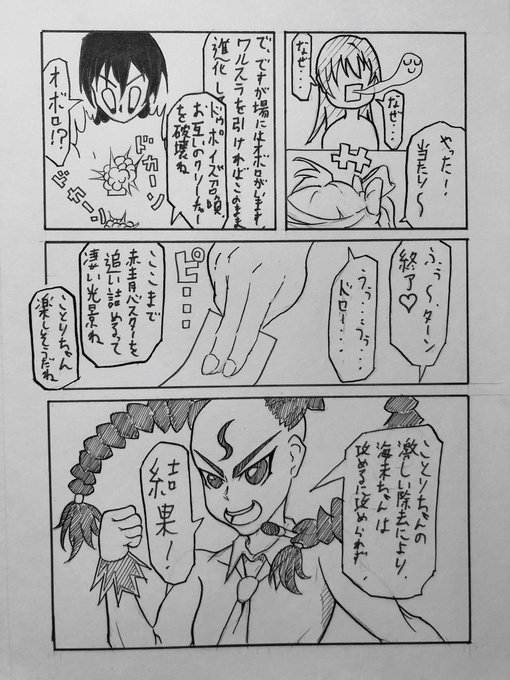 なぜ・・
なぜ・・
やった!
当たり〜
で、ですが場にはオボロがいます。
ワルスラを引ければこのまま
進化し
ドゥポイズ召喚
お互いのクリーチャー
を破壊ね
オボロ!?
ドカーン
ドカーン
ふぅ〜、ターン
終了♡
うぅ・・・うぅ・・
ドロー・・・
ピ・・・
ここまで
赤青バスターを
追い詰めるって
凄い光景ね
ことりちゃん
楽しそうだね
ことりちゃんの
激しい除去により、
海未ちゃんは
攻めるに攻められず、
結果!